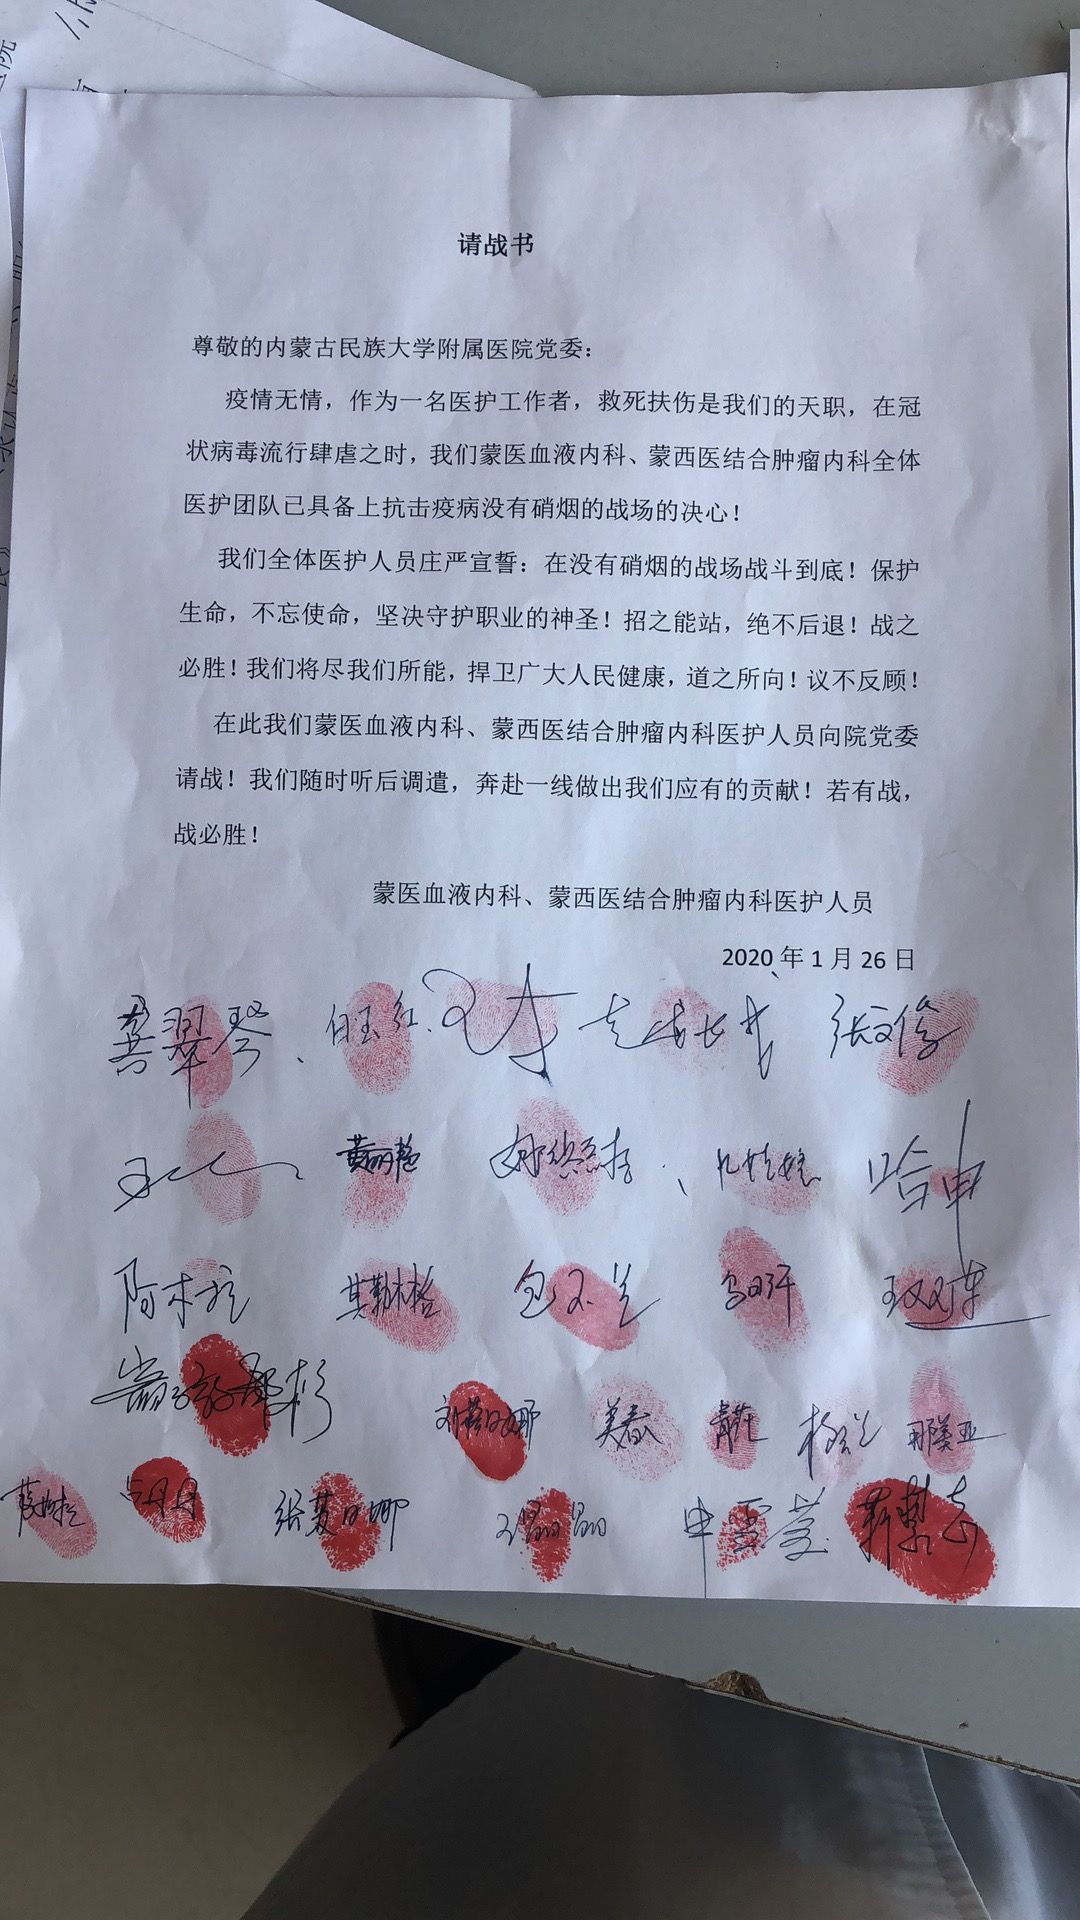 请战书
尊敬的内蒙古民族大学附属医院党委：
疫情无情，作为一名医护工作者，救死扶伤是我们的天职，在冠
状病毒流行肆虐之时，我们蒙医血液内科、蒙西医结合肿瘤内科全体
医护团队已具备上抗击疫病没有硝烟的战场的决心！
我们全体医护人员庄严宣誓：在没有硝烟的战场战斗到底！保护
生命，不忘使命，坚决守护职业的神圣！招之能站，绝不后退！战之
必胜！我们将尽我们所能，捍卫广大人民健康，道之所向！议不反顾！
在此我们蒙医血液内科、蒙西医结合肿瘤内科医护人员向院党委
请战！我们随时听后调遣，奔赴一线做出我们应有的贡献！若有战，
战必胜！
蒙医血液内科、蒙西医结合肿瘤内科医护人员
2020 年 1 月 26 日
龚翠琴 白玉红 张文俊
黄丽艳 哈申
阿木拉 其勒木格 包玉兰 乌日汗 王双连
美春
张萨日娜